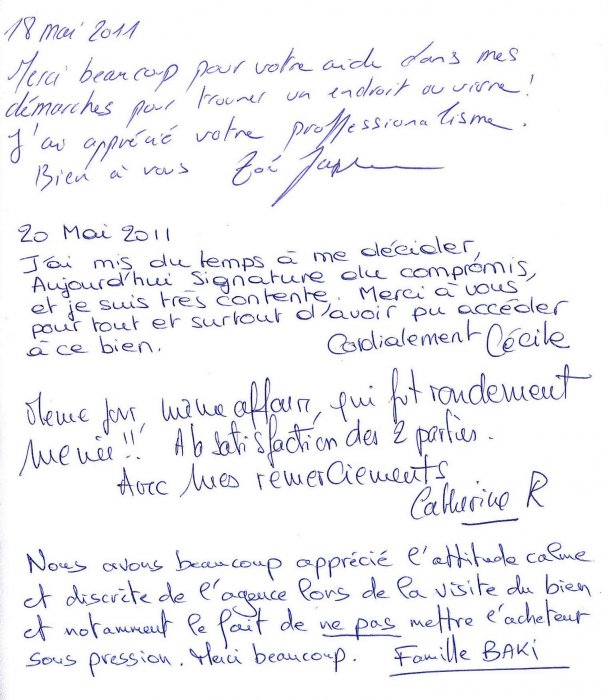 18 mai 2011
Merci beaucoup pour votre aide dans mes
démarches pour trouver un endroit ou vivre!
J'ai apprécié votre proffessionalisme.
Bien à vous Zoé
20 Mai 2011
J'ai mis du temps à me décider,
Aujourd'hui signature du compromis,
et je suis très contente. Merci à vous,
pour tout et surtout d'avoir pu accéder
à ce bien. Cordialement Cécile
Même jour, même affaire, qui fut rondement
menée!! A la satisfaction des 2 parties.
Avec mes remerciements
Catherine R
Nous avons beaucoup apprécié l'attitude calme
et discrète de l'agence lors de la visite du bien
et notamment le fait de ne pas mettre l'acheteur
sous pression. Merci beaucoup. Famille BAKI